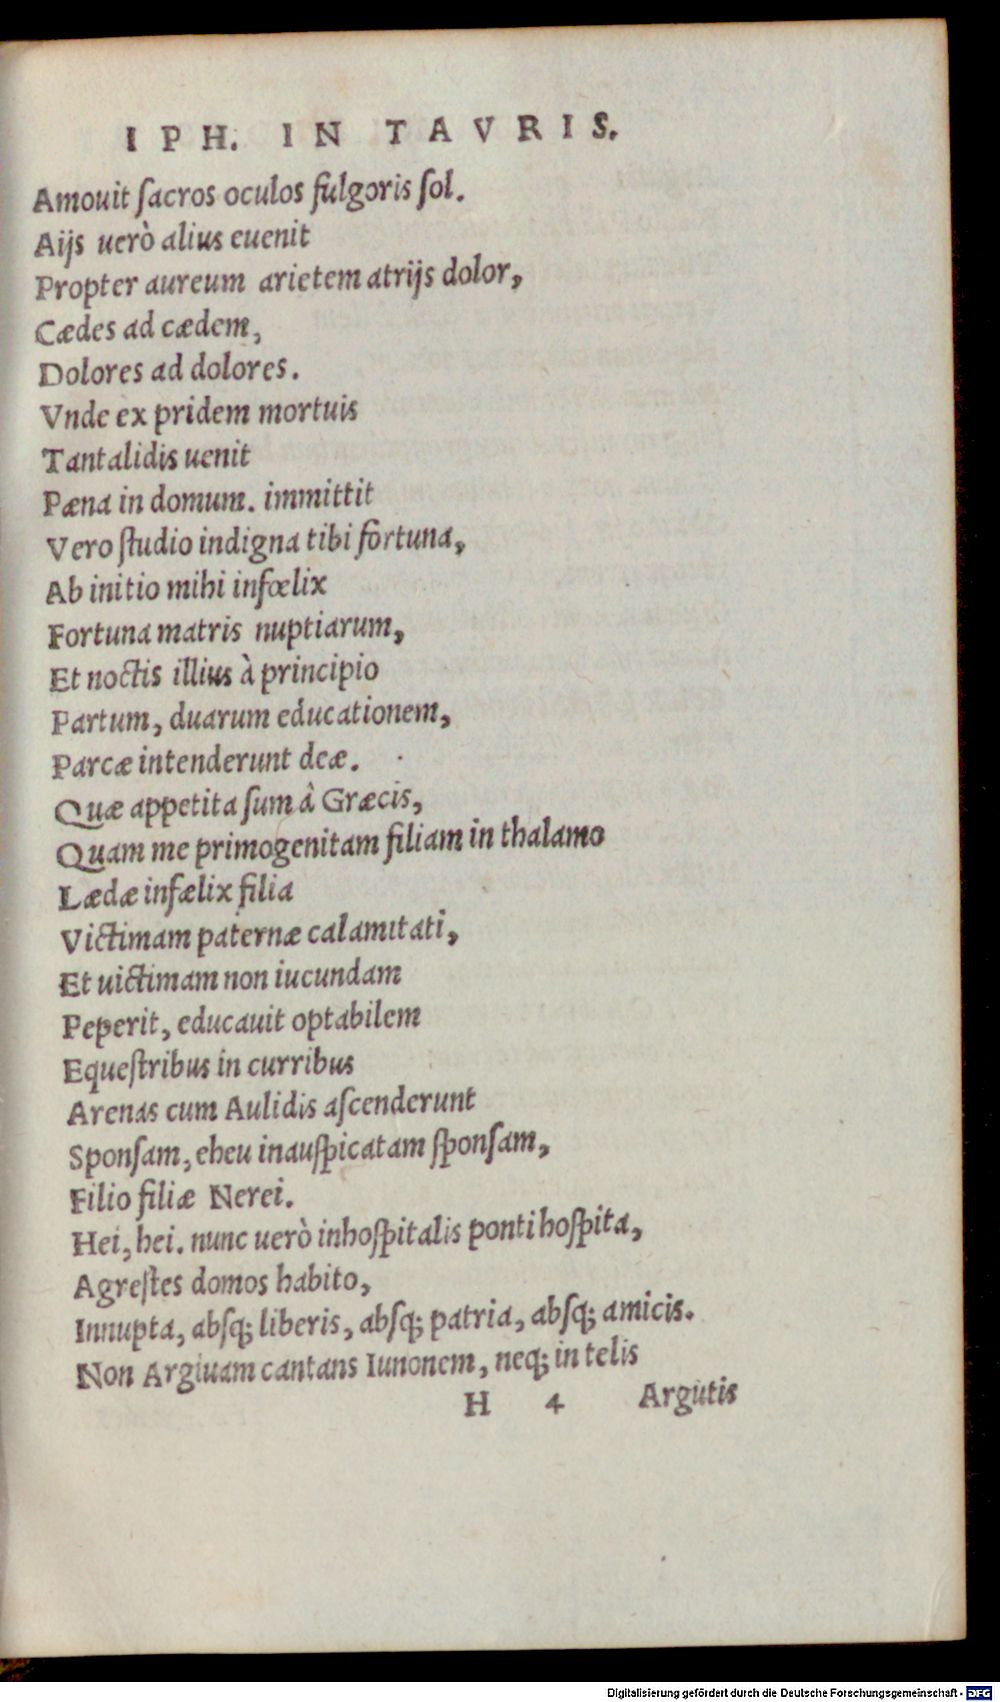 IPH. IN TAVRIS.
Amouit ſacros oculos fulgoris ſol.
Aijs uerò alius euenit
Propter aureum arietem atrijs dolor,
Cædes ad cædem,
Dolores ad dolores.
Vnde ex pridem mortuis
Tantalidis uenit
Pæna in domum. immittit
Vero ſtudio indigna tibi fortuna,
Ab initio mihi infœlix
Fortuna matris nuptiarum,
Et noctis illius à principio
Partum, duarum educationem,
Parcæ intenderunt deæ.
Quæ appetita ſum â Græcis,
Quam me primogenitam filiam in thalamo
Lædæ infælix filia
Victimam paternæ calamitati,
Et uictimam non iucundam
Peperit, educauit optabilem
Equeſtribus in curribus
Arenas cum Aulidis aſcenderunt
Sponſam, eheu inauſpicatam ſponſam,
Filio filiæ Nerei.
Hei, hei. nunc uerò inhoſpitalis ponti hoſpita,
Agreſtes domos habito,
Innupta, abſq; liberis, abſq; patria, abſq; amicis.
Non Argiuam cantans Iunonem, neq; in telis
H 4 Argutis
Digitalisierung gefördert durch die Deutsche Forschungsgemeinschaft - DFG